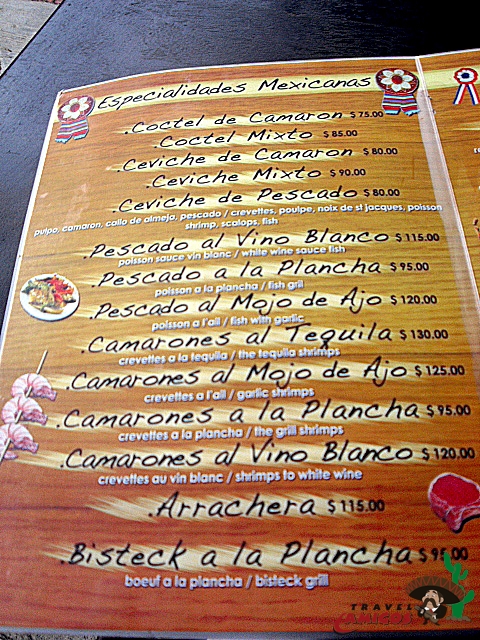 Especialidades Mexicanas
.Coctel de Camaron $75.00
.Coctel Mixto $85.00
.Ceviche de Camaron $80.00
.Ceviche Mixto $90.00
.Ceviche de Pescado $80.00
pulpo, camaron, callo de almeja, pescado / crevettes, poulpe, noix de st jacques, poisson
shrimp, scalops, fish
.Pescado al Vino Blanco $115.00
poisson sauce vin blanc / white wine sauce fish
.Pescado a la Plancha $95.00
poisson a la plancha / fish grill
.Pescado al Mojo de Ajo $120.00
poisson a l'ail / fish with garlic
.Camarones al Tequila $130.00
crevettes a la tequila / the tequila shrimps
.Camarones al Mojo de Ajo $125.00
crevettes a l'ail / garlic shrimps
.Camarones a la Plancha $95.00
crevettes a la plancha / the grill shrimps
.Camarones al Vino Blanco $120.00
crevettes au vin blanc / shrimps to white wine
.Arrachera $115.00
.Bisteck a la Plancha $95.00
boeuf a la plancha / bisteck grill
TRAVEL
AMIGOS